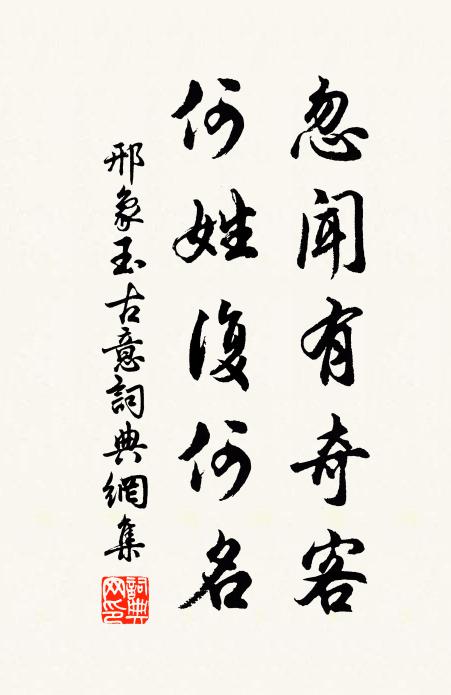 忽聞有奇客
何姓復何名
邢象玉古意詞典網集
詞典
网印